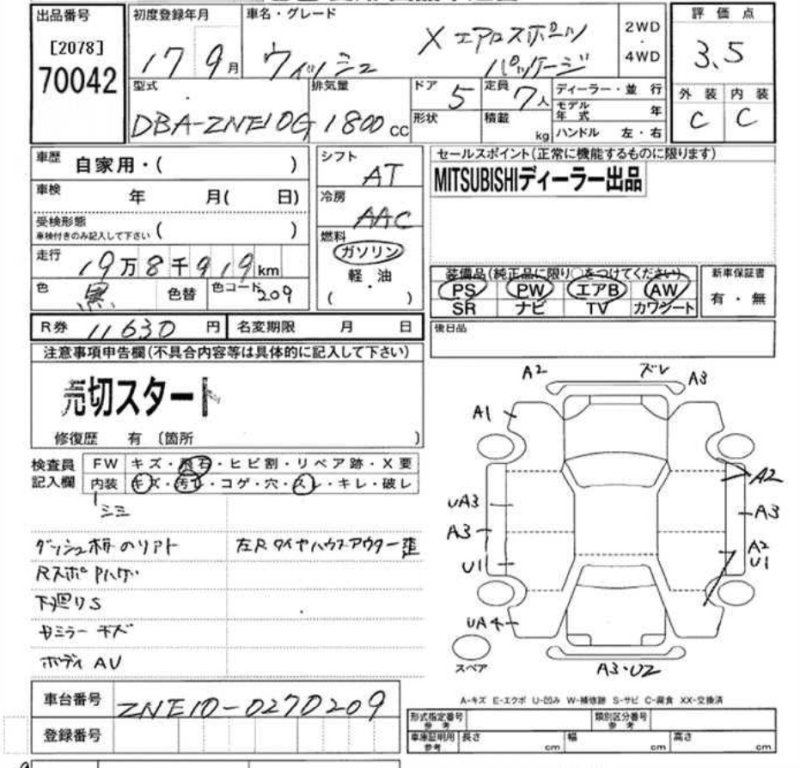 出品番号 初度登録年月 車名・グレード 2WD・4WD 評価点
[2078]
70042
17 9月 ウィッシュ X エアロスポーツ
パッケージ
3.5
型式 排気量 ドア 5 定員 7人 ディーラー・並行 外装 内装
DBA-ZNE10G 1800cc 形状 積載 kg モデル年式 年 C C
ハンドル 左・右
車歴 自家用・( ) シフト AT セールスポイント(正常に機能するものに限ります)
車検 年 月( 日) 冷房 AAC MITSUBISHIディーラー出品
受検形態 ( )
車検付きのみ記入して下さい
燃料 ガソリン
軽・油
( )
走行 19万8千919km
色 黒 色替 色コード 209
装備品(純正品に限り○をつけてください) 新車保証書
PS PW エアB AW 有・無
SR ナビ TV カワシート
R券 11630円 名変期限 月 日 後日品
注意事項申告欄(不具合内容等は具体的に記入して下さい)
売切スタート
修復歴 有 (箇所 )
検査員 FW キズ・飛石・ヒビ割・リペア跡・X要
記入欄 内装 キズ・汚レ・コゲ・穴・スレ・キレ・破レ
シミ
左Rタイヤハウスアウター歪
下廻りS
ボディAU
A2 ズレ A3
A1
A2
UA3 A3
A3 A2
U1 U1
UA4
スペア A3・U2
A-キズ E-エクボ U-凹み W-補修跡 S-サビ C-腐食 XX-交換済
車台番号 ZNE10-0270209
登録番号
形式指定番号 参考 類別区分番号 参考
車庫証明用 参考 長さ cm 幅 cm 高さ cm